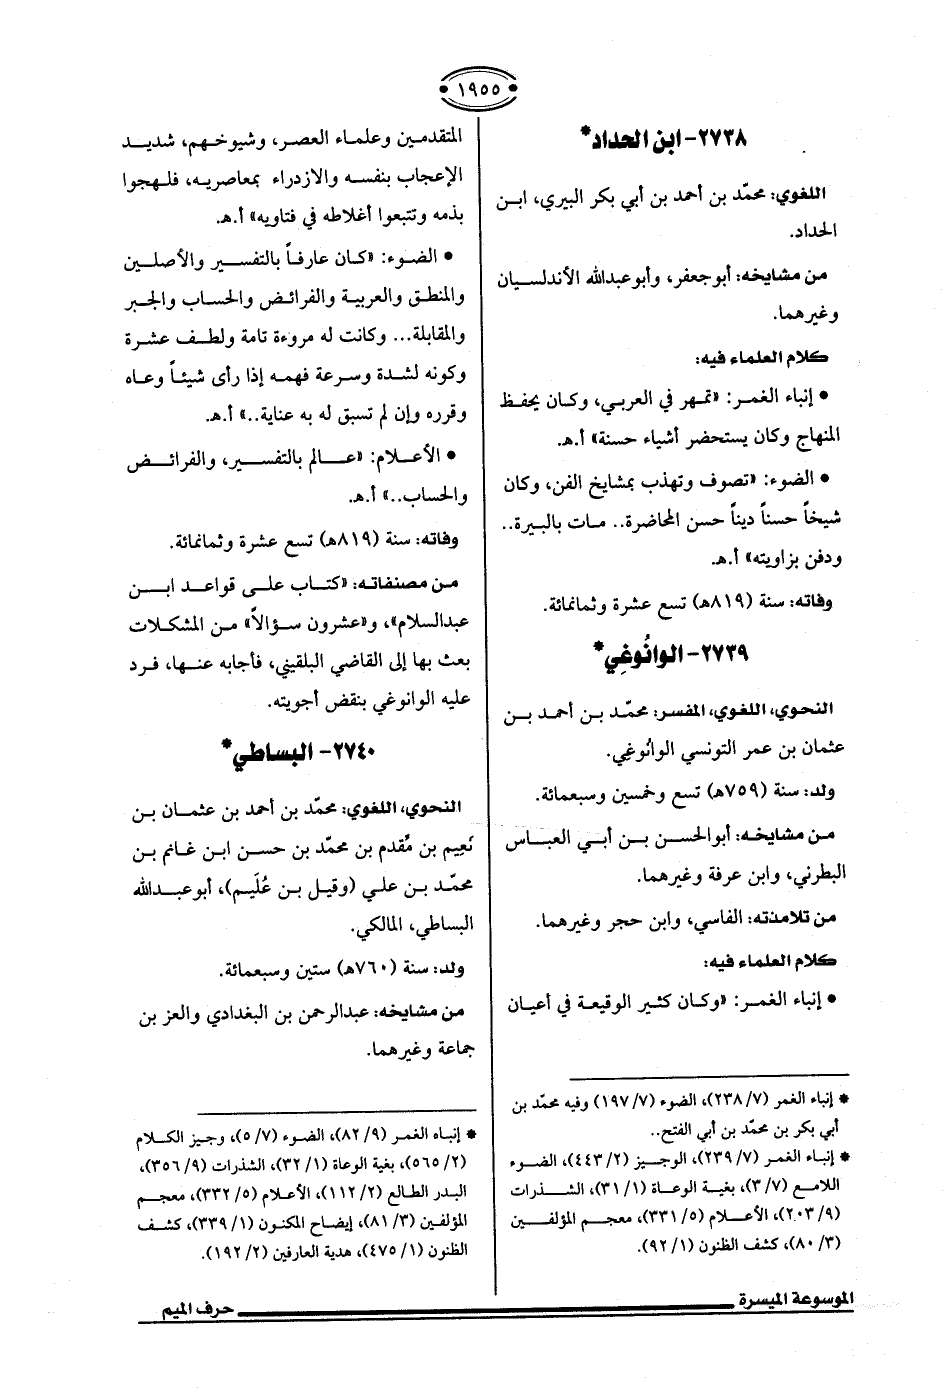 ١٩٥٥
٢٧٣٨- ابن الحداد*
اللغوي: محمّد بن أحمد بن أبي بكر البيري، ابن
الحداد.
من مشايخه: أبوجعفر، وأبوعبدالله الأندلسيان
وغيرهما.
كلام العلماء فيه:
• إنباء الغمر: «تمهر في العربي، وكان يحفظ
المنهاج وكان يستحضر أشياء حسنة» أ.هـ.
• الضوء: «تصوف وتهذب بمشايخ الفن، وكان
شيخاً حسناً ديناً حسن المحاضرة.. مات بالبيرة..
ودفن بزاويته» أ.هـ.
وفاته: سنة (٨١٩هـ) تسع عشرة وثمانمائة.
٢٧٣٩- الوانُوغي*
النحوي، اللغوي، المفسر: محمّد بن أحمد بن
عثمان بن عمر التونسي الوانُوغي.
ولد: سنة (٧٥٩هـ) تسع وخمسين وسبعمائة.
من مشايخه: أبوالحسن بن أبي العباس
البطرني، وابن عرفة وغيرهما.
من تلامذته: الفاسي، وابن حجر وغيرهما.
كلام العلماء فيه:
• إنباء الغمر: «وكان كثير الوقيعة في أعيان
* إنباء الغمر (٢٣٨/٧)، الضوء (١٩٧/٧) وفيه محمّد بن
أبي بكر بن محمّد بن أبي الفتح..
* إنباء الغمر (٢٣٩/٧)، الوجيز (٤٤٣/٢)، الضوء
اللامع (٣/٧)، بغية الوعاة (٣١/١)، الشذرات
(٢٠٣/٩)، الأعلام (٣٣١/٥)، معجم المؤلفين
(٨٠/٣)، كشف الظنون (٩٢/١).
المتقدمين وعلماء العصر، وشيوخهم، شديد
الإعجاب بنفسه والازدراء بمعاصريه، فلهجوا
بذمه وتتبعوا أغلاطه في فتاويه» أ.هـ.
• الضوء: «كان عارفاً بالتفسير والأصلين
والمنطق والعربية والفرائض والحساب والجبر
والمقابلة... وكانت له مروءة تامة ولطف عشرة
وكونه لشدة وسرعة فهمه إذا رأى شيئاً وعاه
وقرره وإن لم تسبق له به عناية..» أ.هـ.
• الأعلام: «عالم بالتفسير، والفرائض
والحساب..» أ.هـ.
وفاته: سنة (٨١٩هـ) تسع عشرة وثمانمائة.
من مصنفاته: «كتاب على قواعد ابن
عبدالسلام»، و«عشرون سؤالاً» من المشكلات
بعث بها إلى القاضي البلقيني، فأجابه عنها، فرد
عليه الوانوغي بنقض أجويته.
٢٧٤٠- البساطي*
النحوي، اللغوي: محمّد بن أحمد بن عثمان بن
نَعِيم بن مُقدم بن محمّد بن حسن ابن غانم بن
محمّد بن علي (وقيل بن عُلَيم)، أبوعبدالله
البساطي، المالكي.
ولد: سنة (٧٦٠هـ) ستين وسبعمائة.
من مشايخه: عبدالرحمن بن البغدادي والعز بن
جماعة وغيرهما.
* إنباه الغمر (٨٢/٩)، الضوء (٥/٧)، وجيز الكلام
(٥٦٥/٢)، بغية الوعاة (٣٢/١)، الشذرات (٣٥٦/٩)،
البدر الطالع (١١٢/٢)، الأعلام (٣٣٢/٥)، معجم
المؤلفين (٨١/٣)، إيضاح المكنون (٣٣٩/١)، كشف
الظنون (٤٧٥/١)، هدية العارفين (١٩٢/٢).
الموسوعة الميسرة
حرف الميم